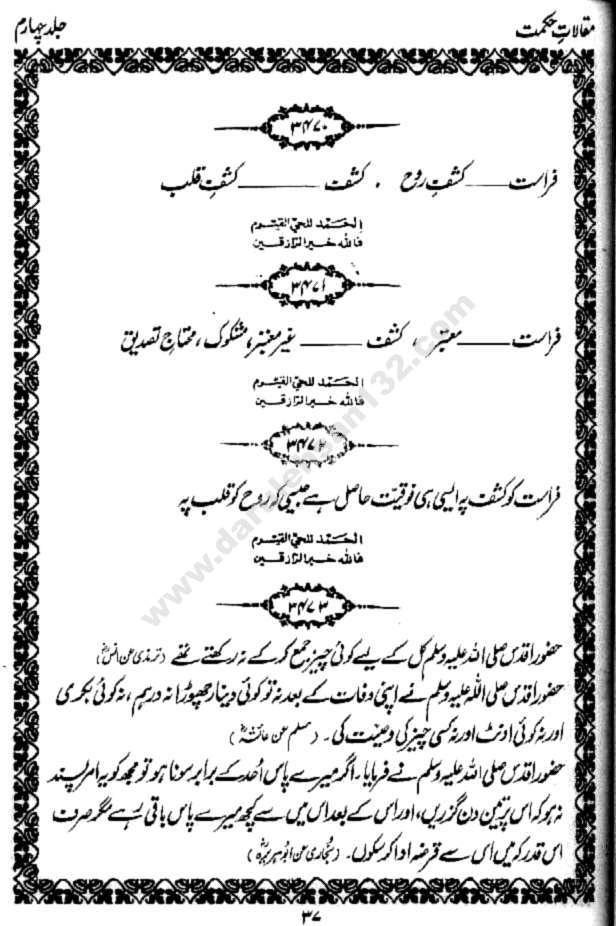 مقالاتِ حکمت
جلد چہارم
۳۴۷۰
فراست ——— کشفِ روح ، کشف ——— کشفِ قلب
الحمد للحی القیوم
فاللہ خیر الرازقین
۳۴۷۱
فراست ——— معتبر ، کشف ——— غیر معتبر، مشکوک ، محتاجِ تصدیق
الحمد للحی القیوم
فاللہ خیر الرازقین
۳۴۷۲
فراست کو کشف پہ ایسی ہی فوقیت حاصل ہے جیسی کہ روح کو قلب پہ
الحمد للحی القیوم
فاللہ خیر الرازقین
۳۴۷۳
حضور اقدس صلی اللہ علیہ وسلم کل کے لیے کوئی چیز جمع کر کے نہ رکھتے تھے (ترمذی عن انسؓ)
حضور اقدس صلی اللہ علیہ وسلم نے اپنی وفات کے بعد نہ تو کوئی دینار چھوڑا نہ درہم ، نہ کوئی بکری
اور نہ کوئی اونٹ اور نہ کسی چیز کی وصیت کی ۔ (مسلم عن عائشہؓ)
حضور اقدس صلی اللہ علیہ وسلم نے فرمایا ۔ اگر میرے پاس اُحد کے برابر سونا ہو تو مجھ کو یہ امر پسند
نہ ہو کہ اس پر تین دن گزریں، اور اس کے بعد اس میں سے کچھ میرے پاس باقی رہے مگر صرف
اس قدر کہ میں اس سے قرضہ ادا کر سکوں ۔ (بخاری عن ابوہریرہؓ)
۳۷
www.darulehsan132.com